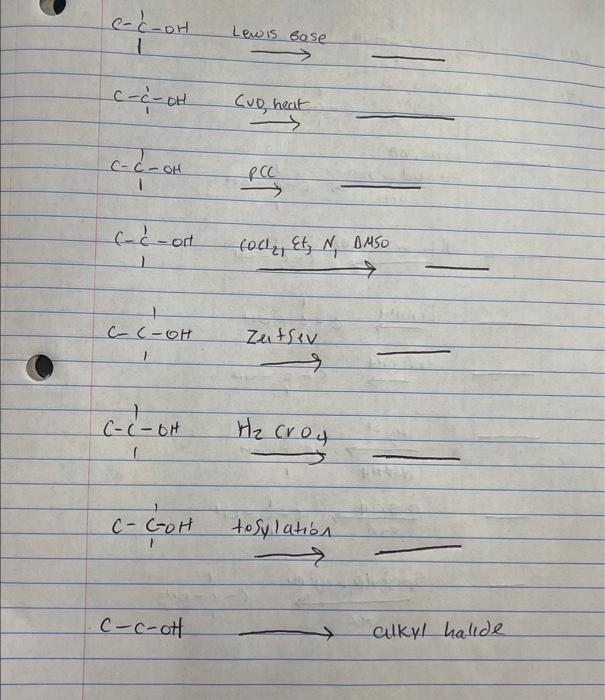 C-C-OH Lewis Base
C-C-OH CuO, heat
C-C-OH PCC
C-C-OH COCl2, Et3 N, DMSO
C-C-OH Zeitsev
C-C-OH H2 CrO4
C-C-OH tosylation
C-C-OH alkyl halide